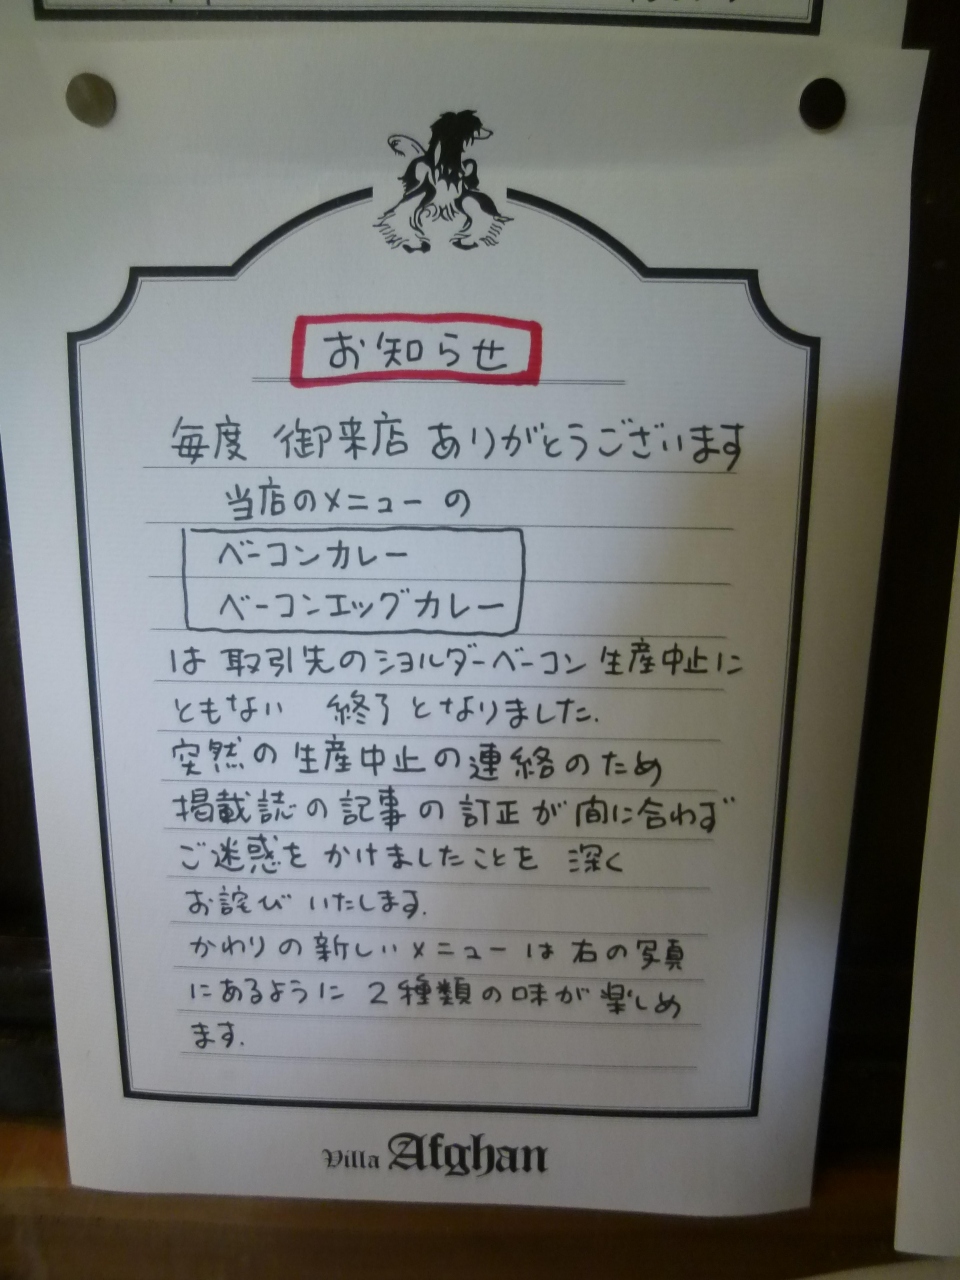 お知らせ
毎度 御来店 ありがとうございます
当店のメニューの
ベーコンカレー
ベーコンエッグカレー
は 取引先のショルダーベーコン 生産中止に
ともない 終了となりました.
突然の生産中止の連絡のため
掲載誌の記事の訂正が間に合わず
ご迷惑を かけましたことを 深く
お詫び いたします.
かわりの新しいメニューは右の写真
にあるように 2種類の味が楽しめ
ます.
Villa Afghan